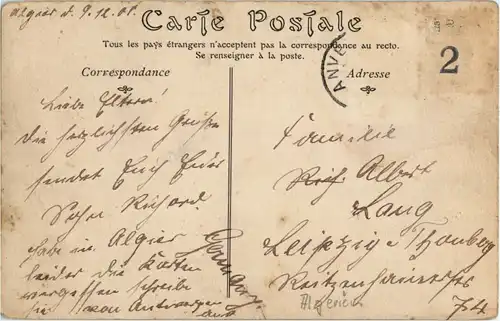 Algier d. 9.12.08.
Carte Postale
Tous les pays étrangers n'acceptent pas la correspondance au recto.
Se renseigner à la poste.
Correspondance
Adresse
ANVE
2
Liebe Eltern!
Die herzlichsten Grüße
sendet Euch Euer
Sohn Richard.
habe in Algier
leider die Karten
vergessen schreibe
sie von Antwerpen
aus
Germany.
Familie
Albert
Lang
Leipzig
Reitzenhainerstr
74
Algerien